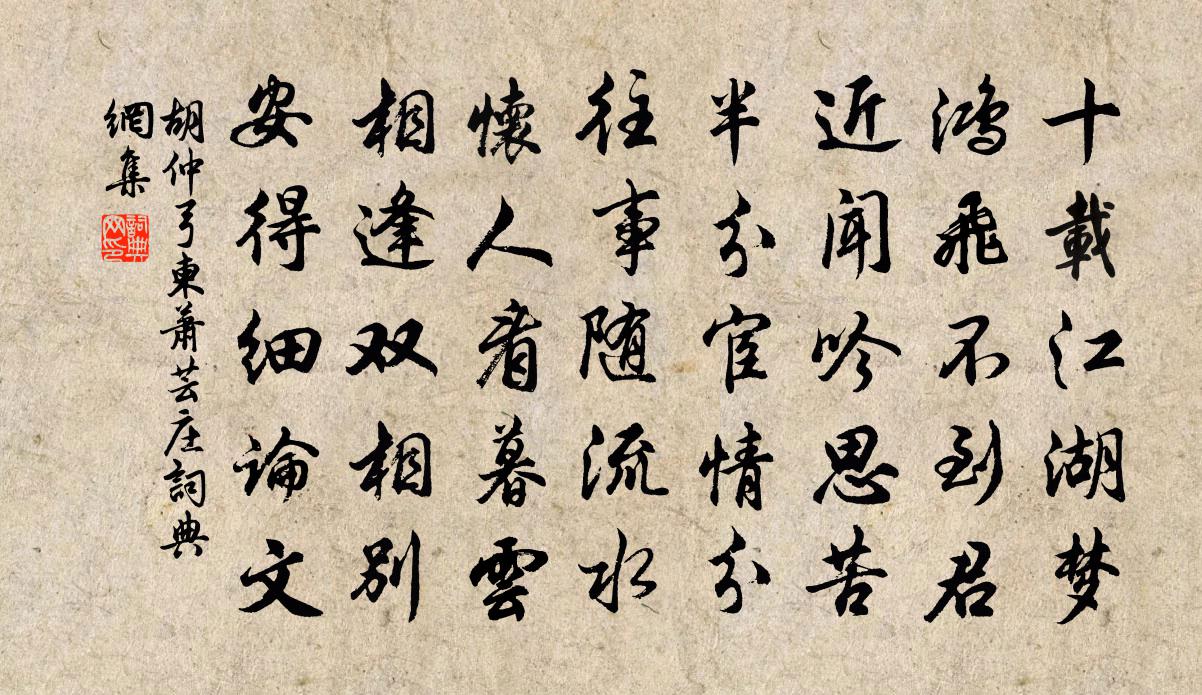 十載江湖梦
鴻飛不到君
近闻吟思苦
半分宦情分
往事随流水
懷人看暮雲
相逢双相别
安得细論文
胡仲弓東萧芸庄詞典
網集
詞典網印